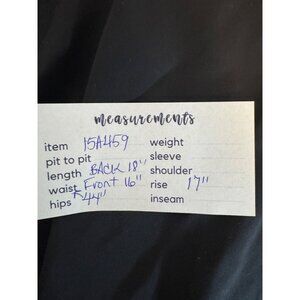 measurements
item 15A459 weight
pit to pit sleeve
length BACK 18" shoulder
waist Front 16" rise 17"
hips 44" inseam